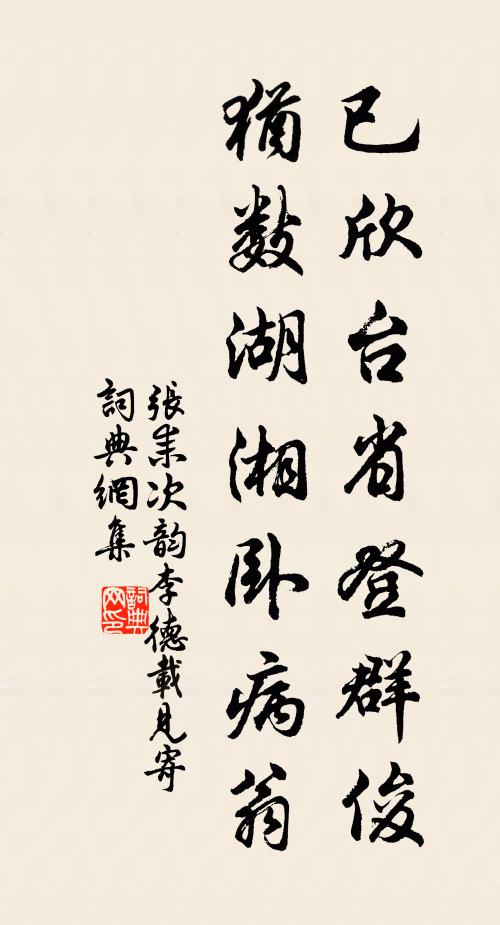 已欣台省登群俊
猶數湖湘卧病翁
張耒次韵李德載見寄
詞典網集
詞典网印